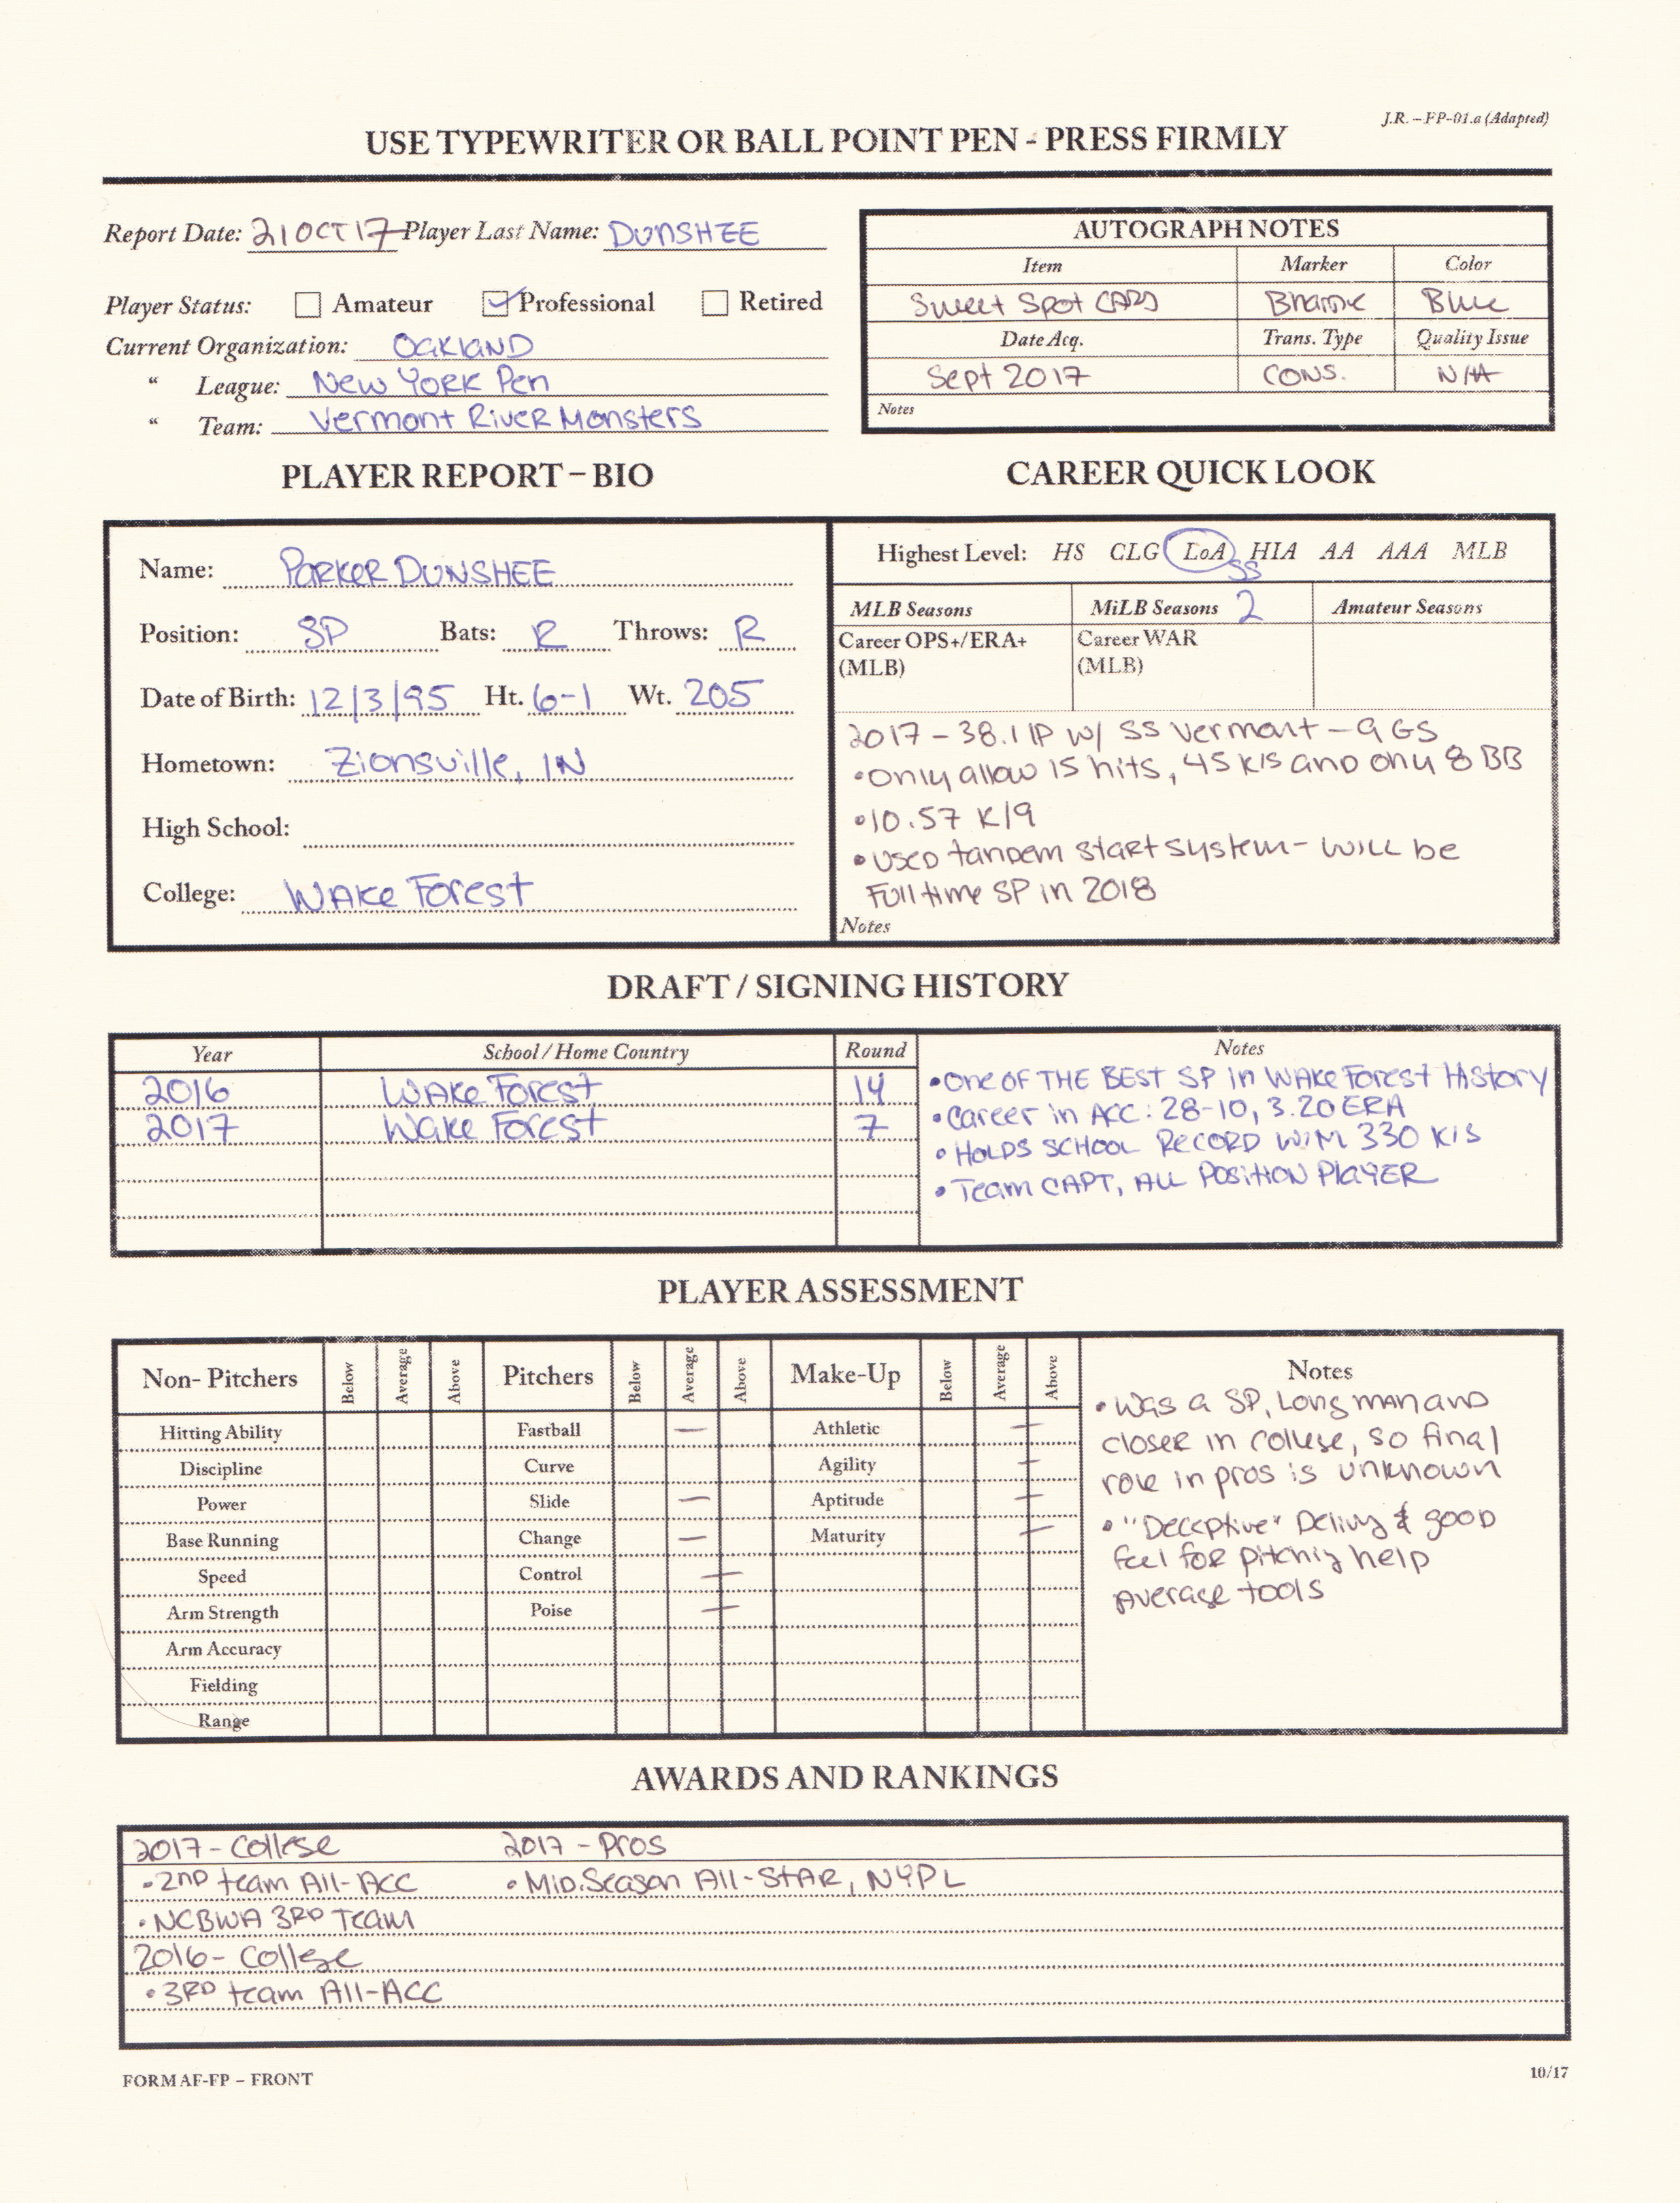 J.R. - FP-01.a (Adapted)
USE TYPEWRITER OR BALL POINT PEN - PRESS FIRMLY
Report Date: 21OCT17 Player Last Name: DUNSHEE
Player Status: Amateur Professional Retired
Current Organization: OAKLAND
" League: New YORK Pen
" Team: Vermont RIVER Monsters
AUTOGRAPH NOTES
Item Marker Color
Sweet Spot CARD Blue
Date Acq. Trans. Type Quality Issue
Sept 2017 CONS. N/A
Notes
PLAYER REPORT – BIO
Name: PARKER DUNSHEE
Position: SP Bats: R Throws: R
Date of Birth: 12/3/95 Ht. 6-1 Wt. 205
Hometown: Zionsville, IN
High School:
College: WAKE FOREST
CAREER QUICK LOOK
Highest Level: HS CLG LoA HIA AA AAA MLB
SS
MLB Seasons MiLB Seasons 2 Amateur Seasons
Career OPS+/ERA+ Career WAR
(MLB) (MLB)
2017 - 38.1 IP w/ SS Vermont - 9 GS
•Only allow 15 hits, 45 K's and only 8 BB
•10.57 K/9
•USED tandem start system- WILL be
Full time SP in 2018
Notes
DRAFT / SIGNING HISTORY
Year School / Home Country Round Notes
2016 WAKE Forest 14
2017 Wake Forest 7
•One OF THE BEST SP in WAKE Forest History
•Career in ACC: 28-10, 3.20 ERA
•HOLDS SCHOOL RECORD WITH 330 K's
•Team CAPT, ALL POSITION PLAYER
PLAYER ASSESSMENT
Non- Pitchers Below Average Above Pitchers Below Average Above Make-Up Below Average Above Notes
Hitting Ability Fastball Athletic
Discipline Curve Agility
Power Slide Aptitude
Base Running Change Maturity
Speed Control
Arm Strength Poise
Arm Accuracy
Fielding
Range
•Was a SP, Long man and
closer in college, so final
role in pros is unknown
•"Deceptive" Delivry & good
feel for pitching help
average tools
AWARDS AND RANKINGS
2017 - College 2017 - Pros
•2ND team All-ACC •Mid.Season All-STAR, NYPL
•NCBWA 3RD Team
2016 - College
•3RD team All-ACC
FORM AF-FP – FRONT 10/17